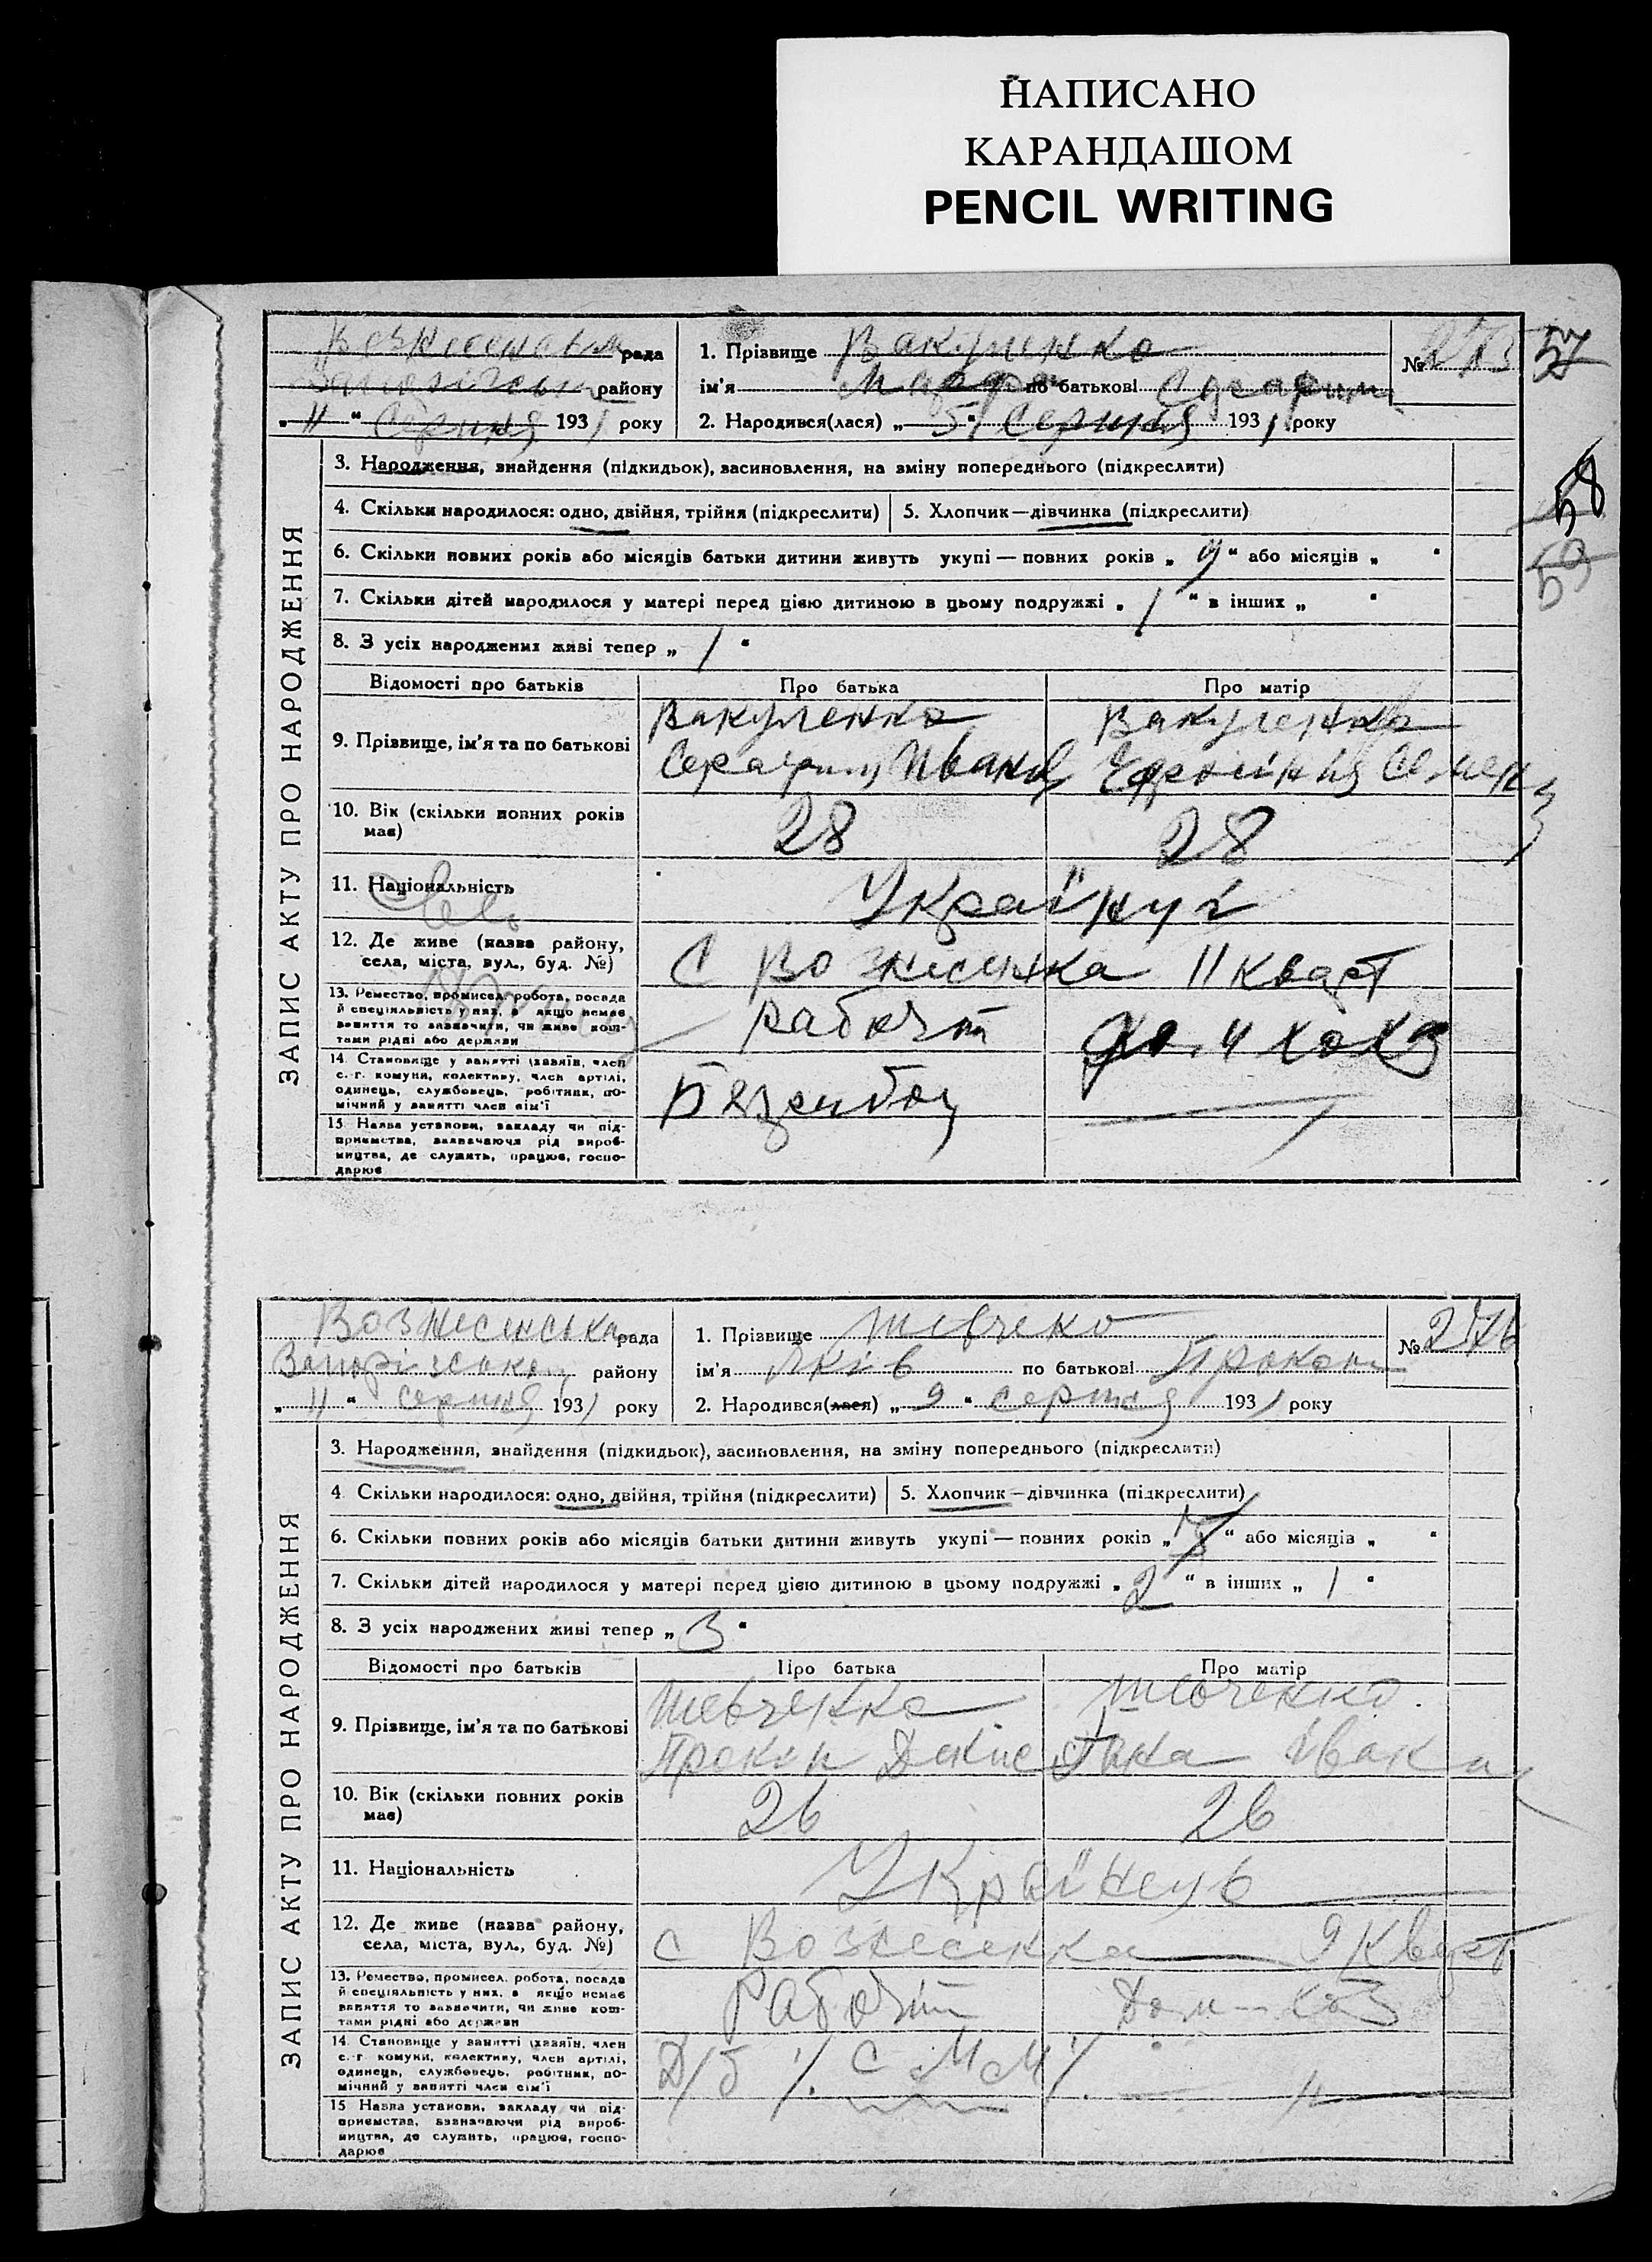 НАПИСАНО
КАРАНДАШОМ
PENCIL WRITING
57
58
59
ЗАПИС АКТУ ПРО НАРОДЖЕННЯ
рада
району
„ 11 “ Серпня 1931 року
1. Прізвище Вакуленко
ім'я по батькові
№ 275
2. Народився(лася) „ 5 “ Серпня 1931 року
3. Народження, знайдення (підкидьок), засиновлення, на зміну попереднього (підкреслити)
4. Скільки народилося: одно, двійня, трійня (підкреслити) 5. Хлопчик—дівчинка (підкреслити)
6. Скільки повних років або місяців батьки дитини живуть укупі — повних років „ “ або місяців „ “
7. Скільки дітей народилося у матері перед цією дитиною в цьому подружжі „ 1 “ в інших „ “
8. З усіх народжених живі тепер „ 1 “
Відомості про батьків Про батька Про матір
9. Прізвище, ім'я та по батькові Вакуленко Вакуленко
Іванов Семен
10. Вік (скільки повних років має) 28 28
11. Національність Українці
12. Де живе (назва району, села, міста, вул., буд. №) С Вознесенка 11 Кварт
13. Ремество, промисел, робота, посада й спеціяльність у них, а якщо немає заняття то зазначити, чи живе коштами рідні або держави Рабочт
14. Становище у занятті (хазяїн, член с.-г. комуни, колективу, член артілі, одинець, службовець, робітник, помічний у занятті член сім'ї
15. Назва установи, закладу чи підприємства, зазначаючи рід виробництва, де служить, працює, господарює
ЗАПИС АКТУ ПРО НАРОДЖЕННЯ
Вознесенська рада
району
„ 11 “ серпня 1931 року
1. Прізвище Шевчеко
ім'я Яків по батькові Прокоп
№ 276
2. Народився(лася) „ 9 “ серпня 1931 року
3. Народження, знайдення (підкидьок), засиновлення, на зміну попереднього (підкреслити)
4. Скільки народилося: одно, двійня, трійня (підкреслити) 5. Хлопчик—дівчинка (підкреслити)
6. Скільки повних років або місяців батьки дитини живуть укупі — повних років „ “ або місяців „ “
7. Скільки дітей народилося у матері перед цією дитиною в цьому подружжі „ 2 “ в інших „ 1 “
8. З усіх народжених живі тепер „ 3 “
Відомості про батьків Про батька Про матір
9. Прізвище, ім'я та по батькові Шевченко Шевченко
Прокіп Івана
10. Вік (скільки повних років має) 26 26
11. Національність Українець
12. Де живе (назва району, села, міста, вул., буд. №) с Вознесенка 9 Кварт
13. Ремество, промисел, робота, посада й спеціяльність у них, а якщо немає заняття то зазначити, чи живе коштами рідні або держави Рабочт Дом-хоз
14. Становище у занятті (хазяїн, член с.-г. комуни, колективу, член артілі, одинець, службовець, робітник, помічний у занятті член сім'ї
15. Назва установи, закладу чи підприємства, зазначаючи рід виробництва, де служить, працює, господарює